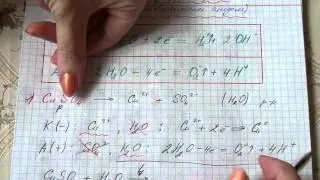 H₂O + 2e = H₂↑ + 2OH⁻
2H₂O - 4e = O₂↑ + 4H⁺
1) CuSO₄ → Cu²⁺ + SO₄²⁻ (H₂O) р-р
р
K(-): Cu²⁺, H₂O : Cu²⁺ + 2e → Cu⁰
A(+): SO₄²⁻, H₂O : 2H₂O - 4e → O₂↑ + 4H⁺
CuSO₄ + H₂O